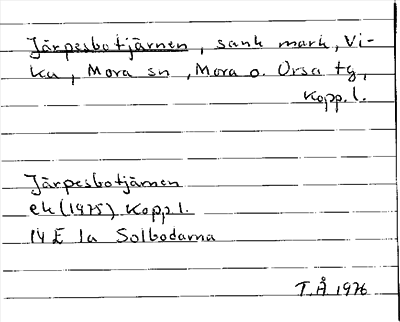 Järpesbotjärnen, sank mark, Vi-
ka, Mora sn, Mora o. Orsa tg,
Kopp. l.
Järpesbotjärnen
ek (1975) Kopp l.
14 E 1a Solbodarna
T.Å 1976